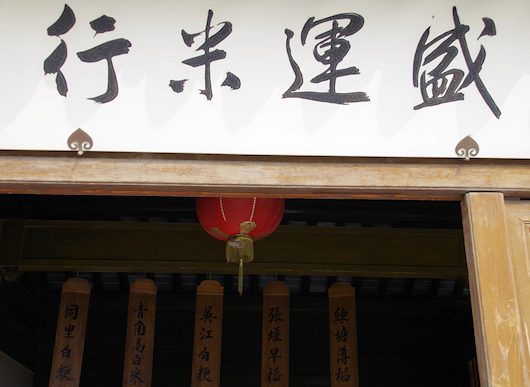 盛運米行
練塘薄稻
張堰早稻
吳江白粳
青角高白米
同里白粳